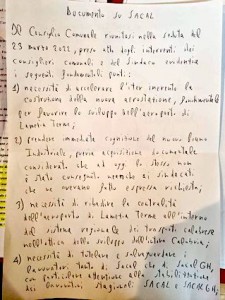 Documento su SACAL
Il Consiglio Comunale riunitosi nella seduta del
23 marzo 2022, preso atto degli interventi dei
consiglieri comunali e del Sindaco evidenzia
i seguenti fondamentali punti:
1) necessità di accelerare l'iter inerente la
costruzione della nuova aerostazione, fondamentale
per favorire lo sviluppo dell'aeroporto di
Lamezia Terme;
2) prendere immediata cognizione del nuovo Piano
Industriale, previa acquisizione documentale
considerato che ad oggi lo stesso non
è stato consegnato neanche ai sindacati
che ne avevano fatto espressa richiesta;
3) necessità di ribadire la centralità
dell'aeroporto di Lamezia Terme all'interno
del sistema regionale dei trasporti calabrese
nell'ottica dello sviluppo dell'intera Calabria;
4) necessità di tutelare e salvaguardare i
lavoratori tanto di Sacal che di Sacal GH,
con particolare attenzione alla stabilizzazione
dei lavoratori stagionali SACAL e SACAL GH;